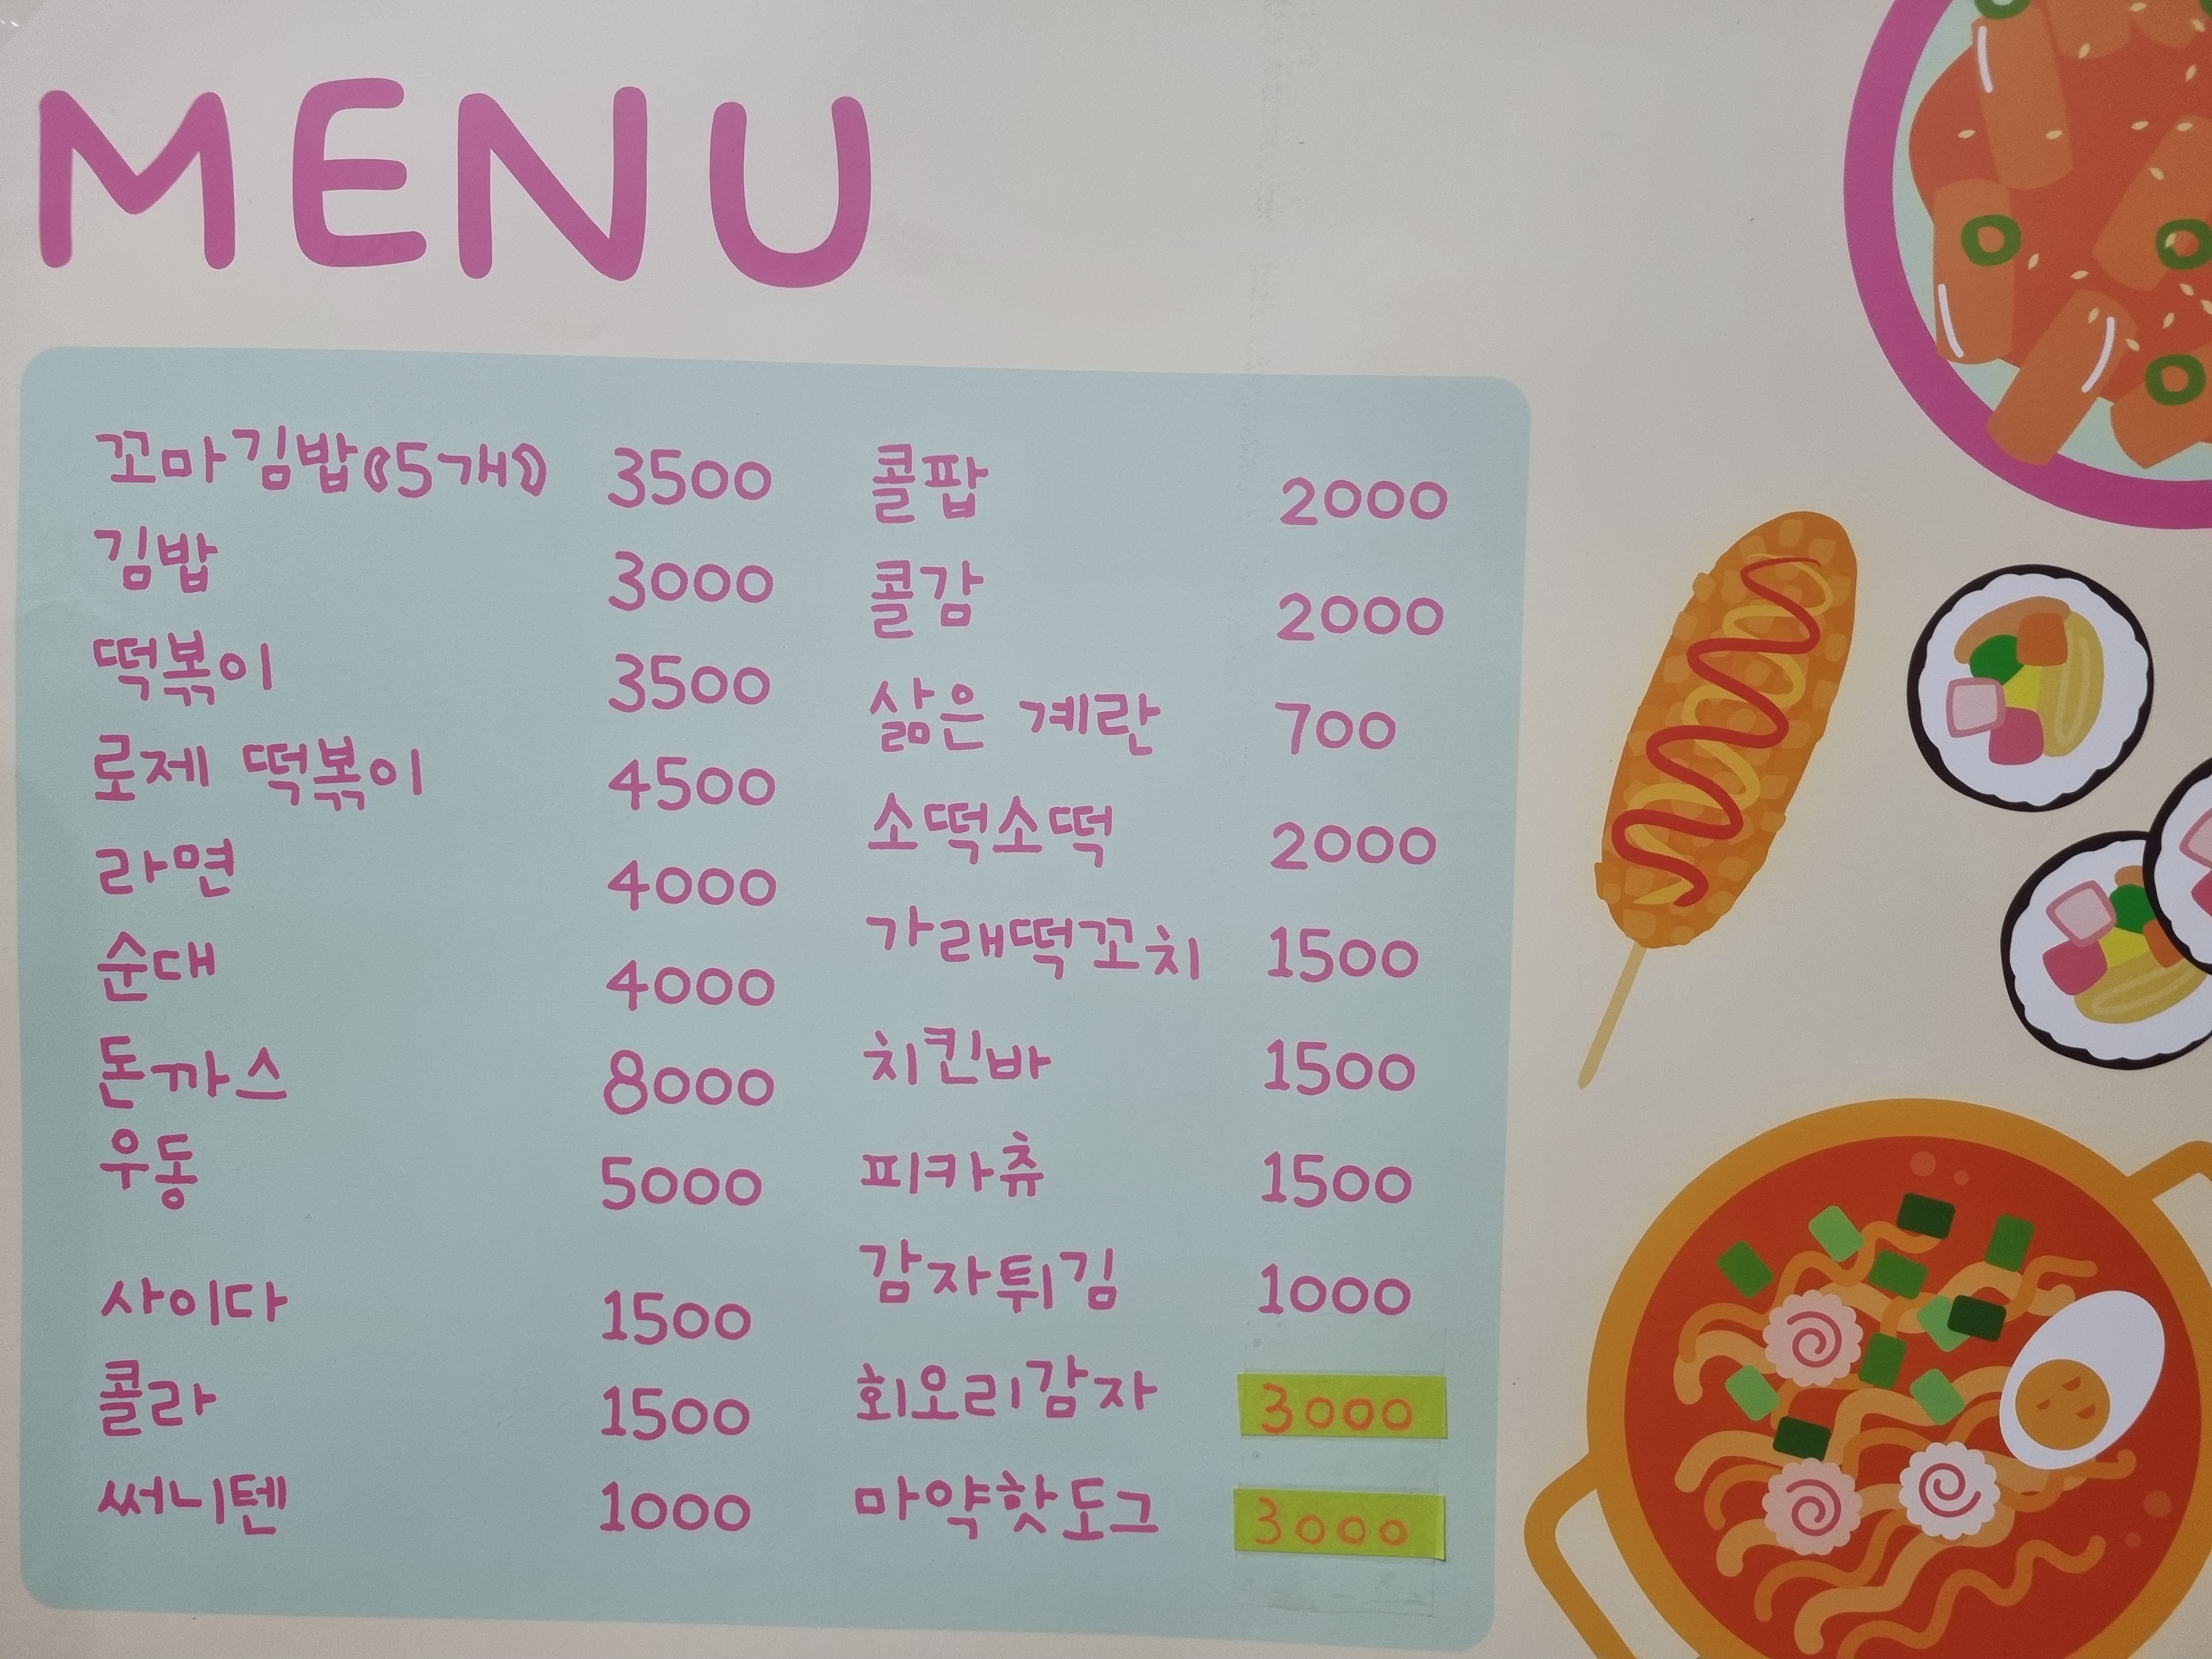 MENU
꼬마김밥(5개) 3500
김밥 3000
떡볶이 3500
로제 떡볶이 4500
라면 4000
순대 4000
돈까스 8000
우동 5000
사이다 1500
콜라 1500
써니텐 1000
콜팝 2000
콜감 2000
삶은 계란 700
소떡소떡 2000
가래떡꼬치 1500
치킨바 1500
피카츄 1500
감자튀김 1000
회오리감자 3000
마약핫도그 3000